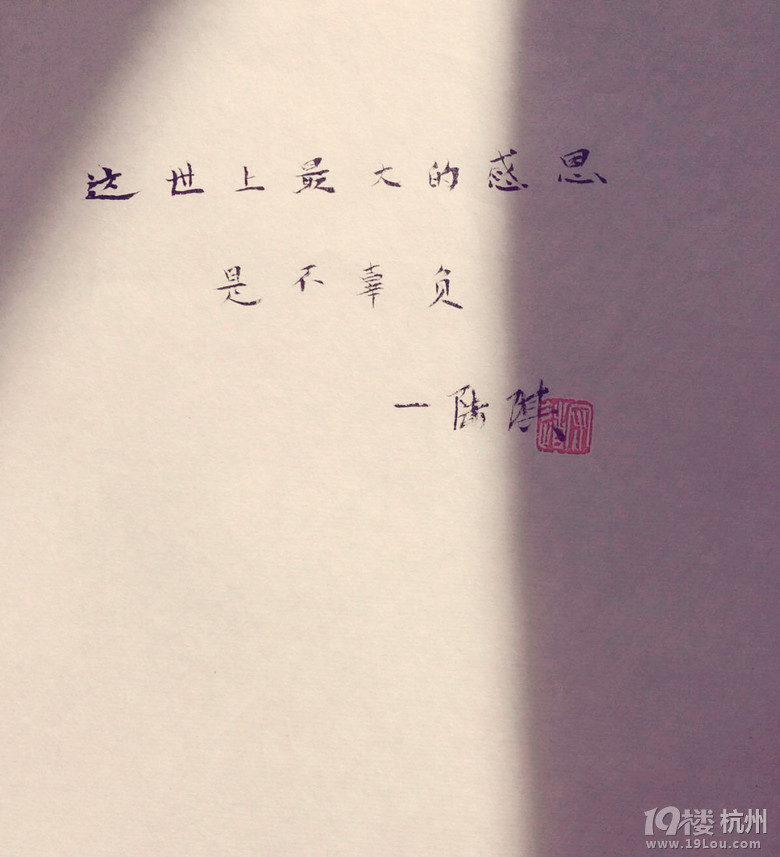 这世上最大的感恩
是不辜负
—陆琪
19楼 杭州
www.19Lou.com